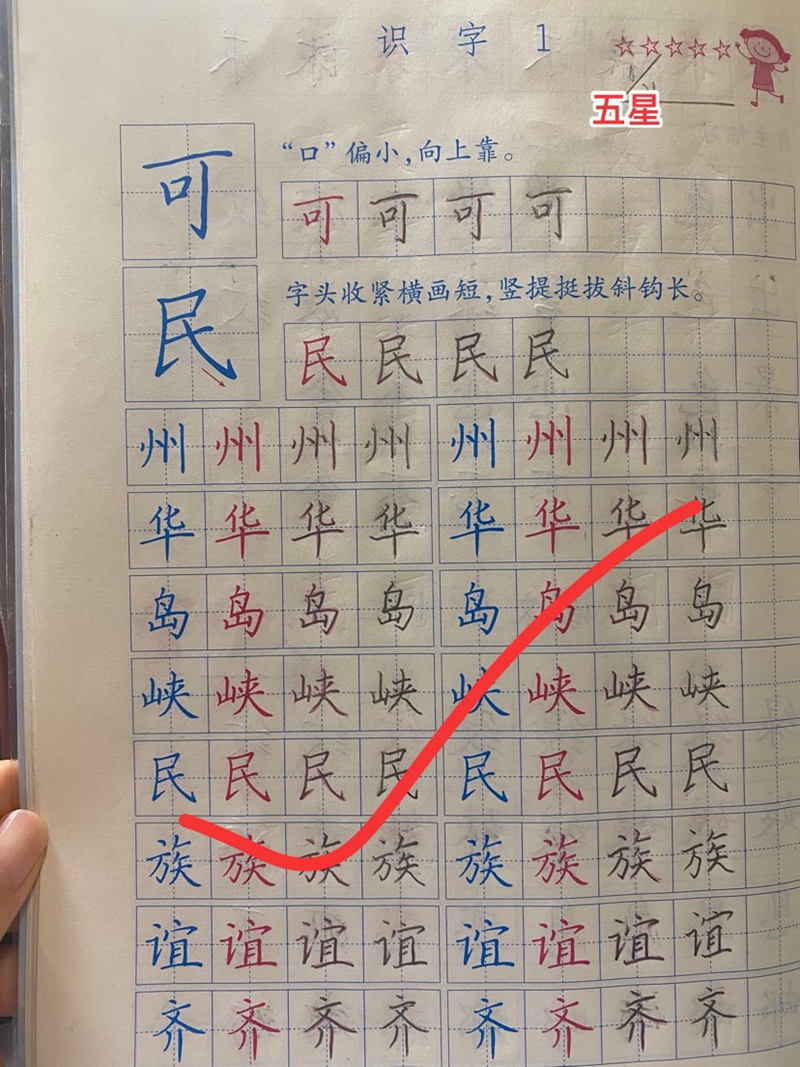 识字1
五星
可
“口”偏小,向上靠。
可可可可
民
字头收紧横画短,竖提挺拔斜钩长。
民民民民
州州州州州州州州
华华华华华华华华
岛岛岛岛岛岛岛岛
峡峡峡峡峡峡峡峡
民民民民民民民民
族族族族族族族族
谊谊谊谊谊谊谊谊
齐齐齐齐齐齐齐齐